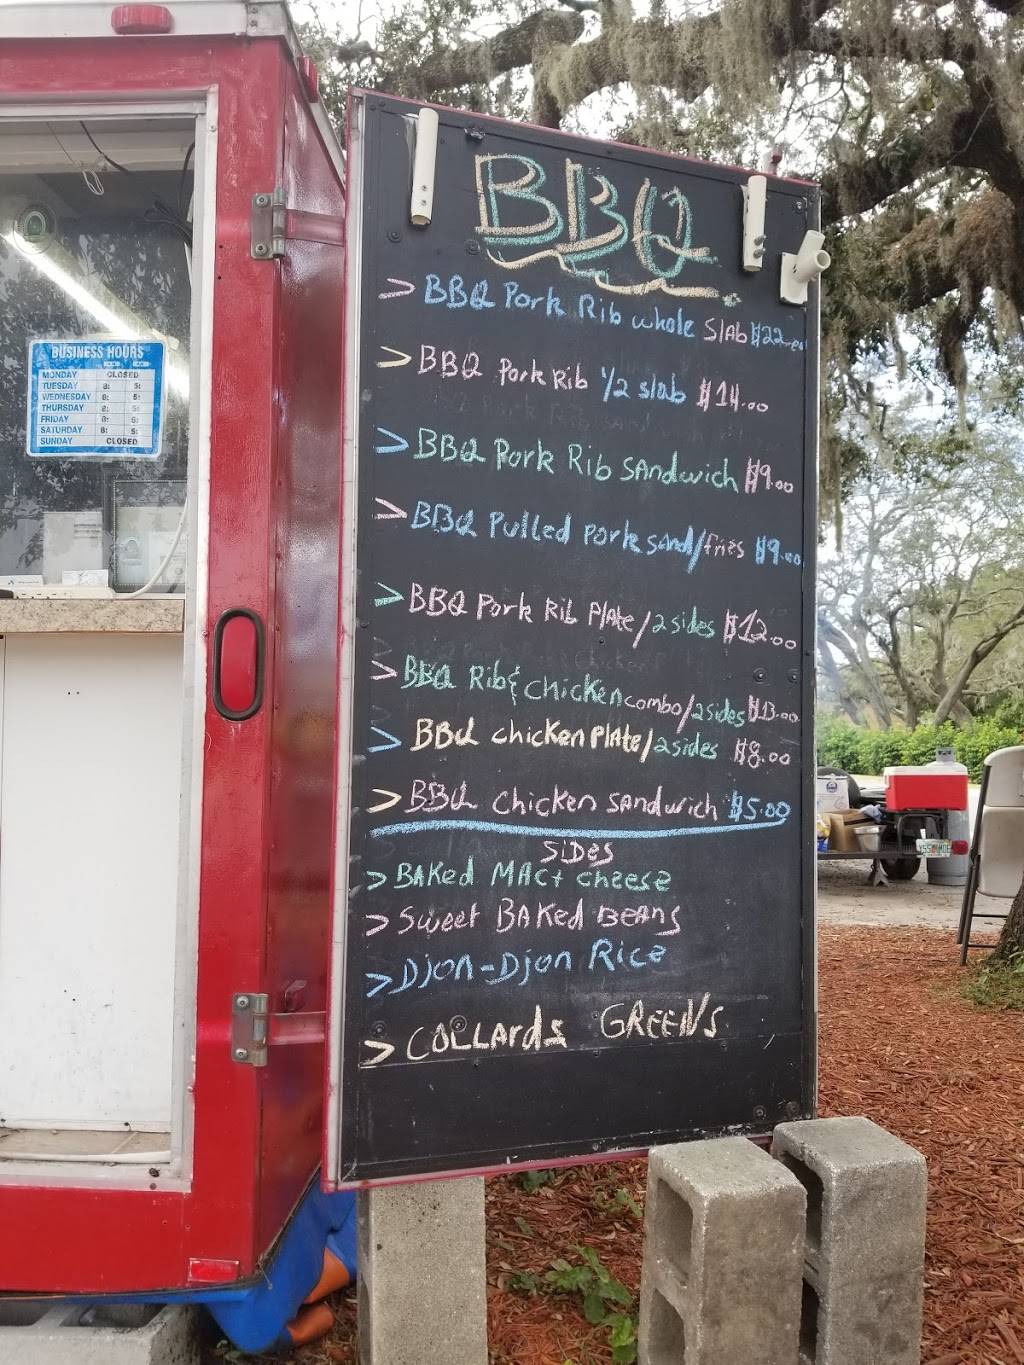 BUSINESS HOURS
MONDAY CLOSED
TUESDAY 8: 5:
WEDNESDAY 8: 5:
THURSDAY 8: 5:
FRIDAY 8: 5:
SATURDAY 8: 5:
SUNDAY CLOSED
BBQ
> BBQ Pork Rib whole Slab $22.00
> BBQ Pork Rib 1/2 slab $14.00
> BBQ Pork Rib SANdwich $9.00
> BBQ Pulled Pork sand/fries $9.00
> BBQ Pork Rib Plate/2 sides $12.00
> BBQ Rib & Chicken combo/2 sides $13.00
> BBQ chicken Plate/2 sides $8.00
> BBQ Chicken SANdwich $5.00
SiDes
> BAKed MAC + cheese
> Sweet BAKed BEANS
> Djon-Djon Rice
> COLLArds GREENS